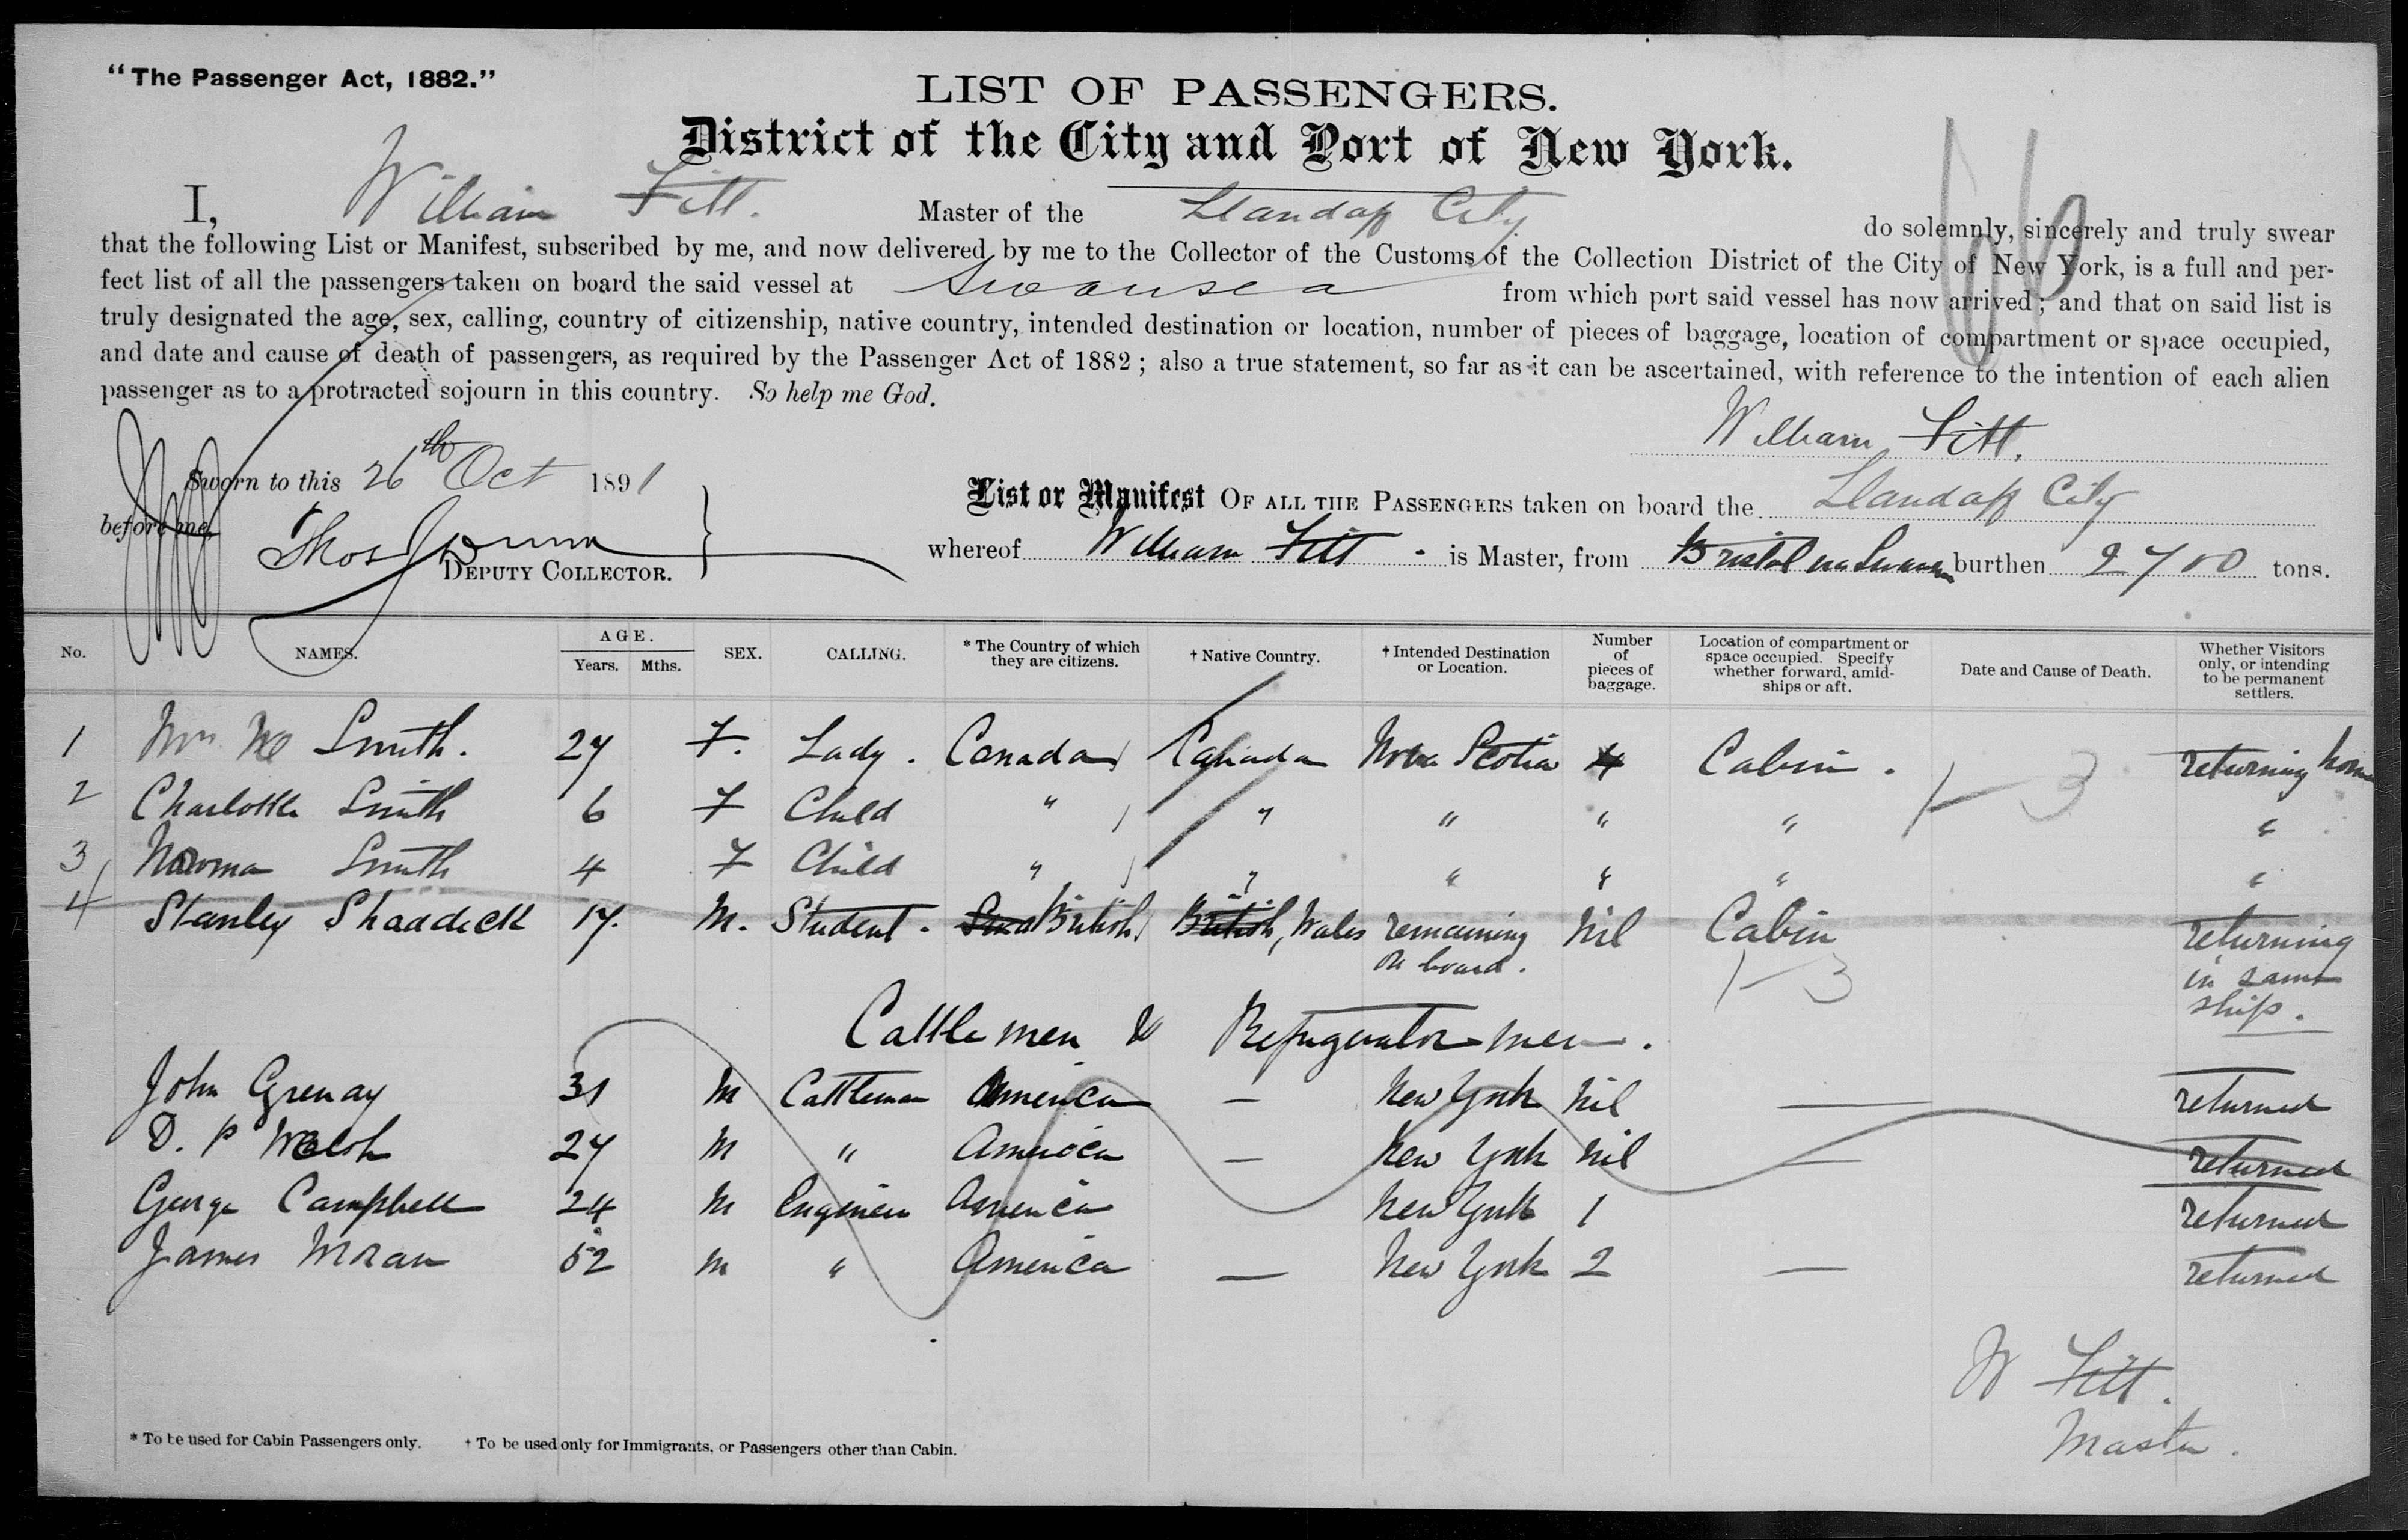 "The Passenger Act, 1882."
LIST OF PASSENGERS.
District of the City and Port of New York.
I, William Fitt. Master of the Llandaff City do solemnly, sincerely and truly swear
that the following List or Manifest, subscribed by me, and now delivered by me to the Collector of the Customs of the Collection District of the City of New York, is a full and per-
fect list of all the passengers taken on board the said vessel at Swansea from which port said vessel has now arrived; and that on said list is
truly designated the age, sex, calling, country of citizenship, native country, intended destination or location, number of pieces of baggage, location of compartment or space occupied,
and date and cause of death of passengers, as required by the Passenger Act of 1882; also a true statement, so far as it can be ascertained, with reference to the intention of each alien
passenger as to a protracted sojourn in this country. So help me God.
William Fitt.
Sworn to this 26th Oct 1891
before me,
Thos
DEPUTY COLLECTOR.
List or Manifest OF ALL THE PASSENGERS taken on board the Llandaff City
whereof William Fitt. is Master, from Bristol via Swansea burthen 2700 tons.
No. NAMES. AGE. Years. Mths. SEX. CALLING. * The Country of which they are citizens. † Native Country. † Intended Destination or Location. Number of pieces of baggage. Location of compartment or space occupied. Specify whether forward, amid-ships or aft. Date and Cause of Death. Whether Visitors only, or intending to be permanent settlers.
1 Mrs Smith. 27 F. Lady. Canada Canada Nova Scotia 4 Cabin. returning home
2 Charlotte Smith 6 F Child " " " " " "
1-3
3 Norma Smith 4 F Child " " " " " "
4 Stanley Shaddick 17. M. Student. British British, Wales remaining on board. Nil Cabin returning in same ship.
1-3
Cattlemen & Refrigerator men.
John Grenay 31 M Cattleman America — New York Nil — returned
D. P Welsh 27 M " America — New York Nil — returned
George Campbell 24 M Engineer America New York 1 returned
James Moran 52 M " America — New York 2 — returned
W Fitt.
Master.
* To be used for Cabin Passengers only. † To be used only for Immigrants, or Passengers other than Cabin.